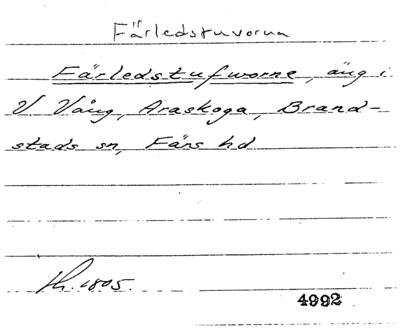 Färledstuvorna
Färledstufworne, äng i
V Vång, Araskoga, Brand-
stads sn, Färs hd
Lh. 1805.
4992